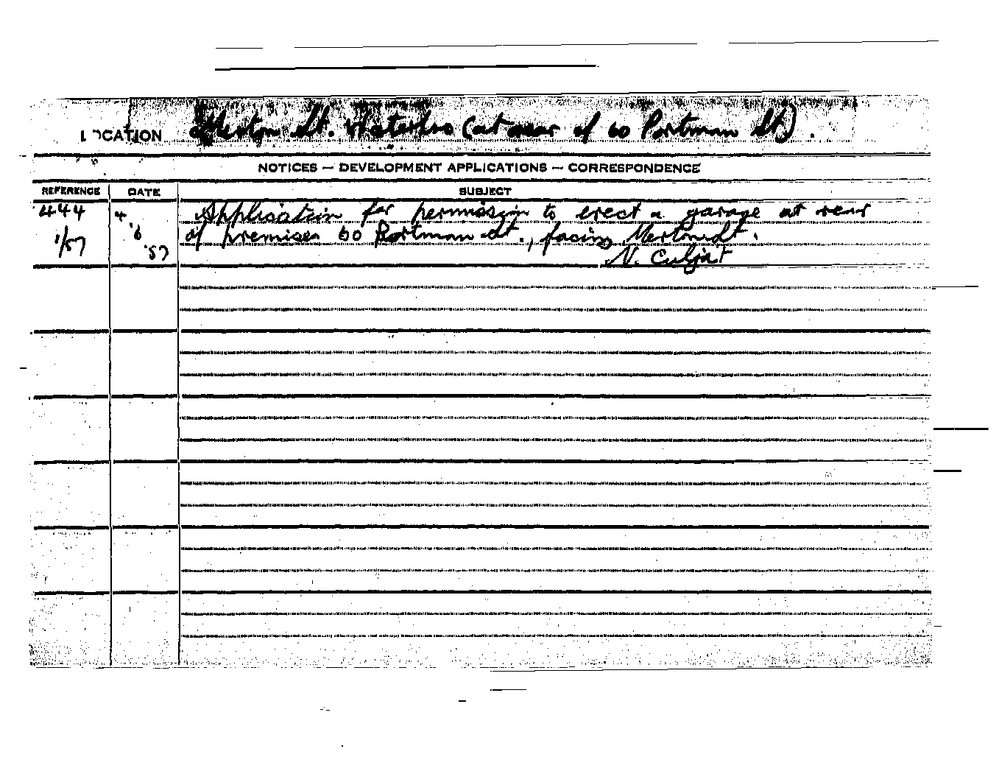 LOCATION Merton St. Waterloo (at rear of 60 Portman St).
NOTICES — DEVELOPMENT APPLICATIONS — CORRESPONDENCE
REFERENCE DATE SUBJECT
444 4 Application for permission to erect a garage at rear
1/57 '6 of premises 60 Portman St., facing Merton St.
'57 N. Culjat